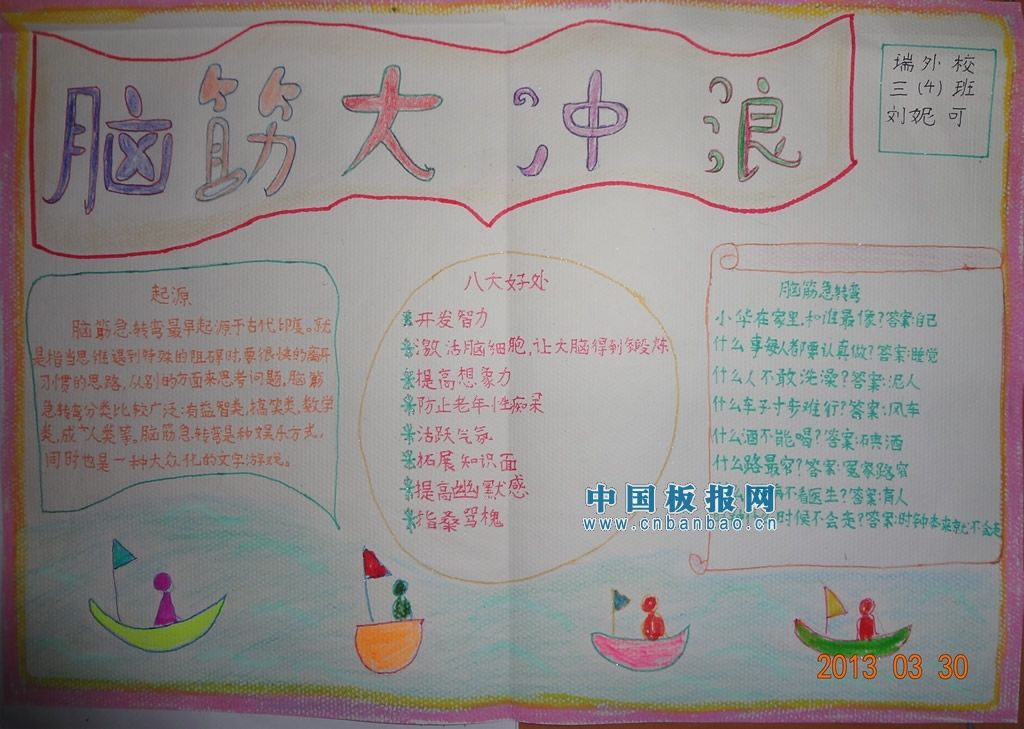 脑筋大冲浪
瑞外校
三(4)班
刘妮可
起源
脑筋急转弯最早起源于古代印度。就
是指当思维遇到特殊的阻碍时,要很快的离开
习惯的思路,从别的方面来思考问题,脑筋
急转弯分类比较广泛:有益智类,搞笑类,数学
类,成人类等。脑筋急转弯是种娱乐方式,
同时也是一种大众化的文字游戏。
八大好处
开发智力
激活脑细胞,让大脑得到锻炼
提高想象力
防止老年性痴呆
活跃气氛
拓展知识面
提高幽默感
指桑骂槐
脑筋急转弯
小华在家里,和谁最像?答案:自己
什么事每人都要认真做?答案:睡觉
什么人不敢洗澡?答案:泥人
什么车子寸步难行?答案:风车
什么酒不能喝?答案:碘酒
什么路最窄?答案:冤家路窄
病不看医生?答案:盲人
时候不会走?答案:时钟本来就不会走
中国板报网
www.cnbanbao.cn
2013 03 30